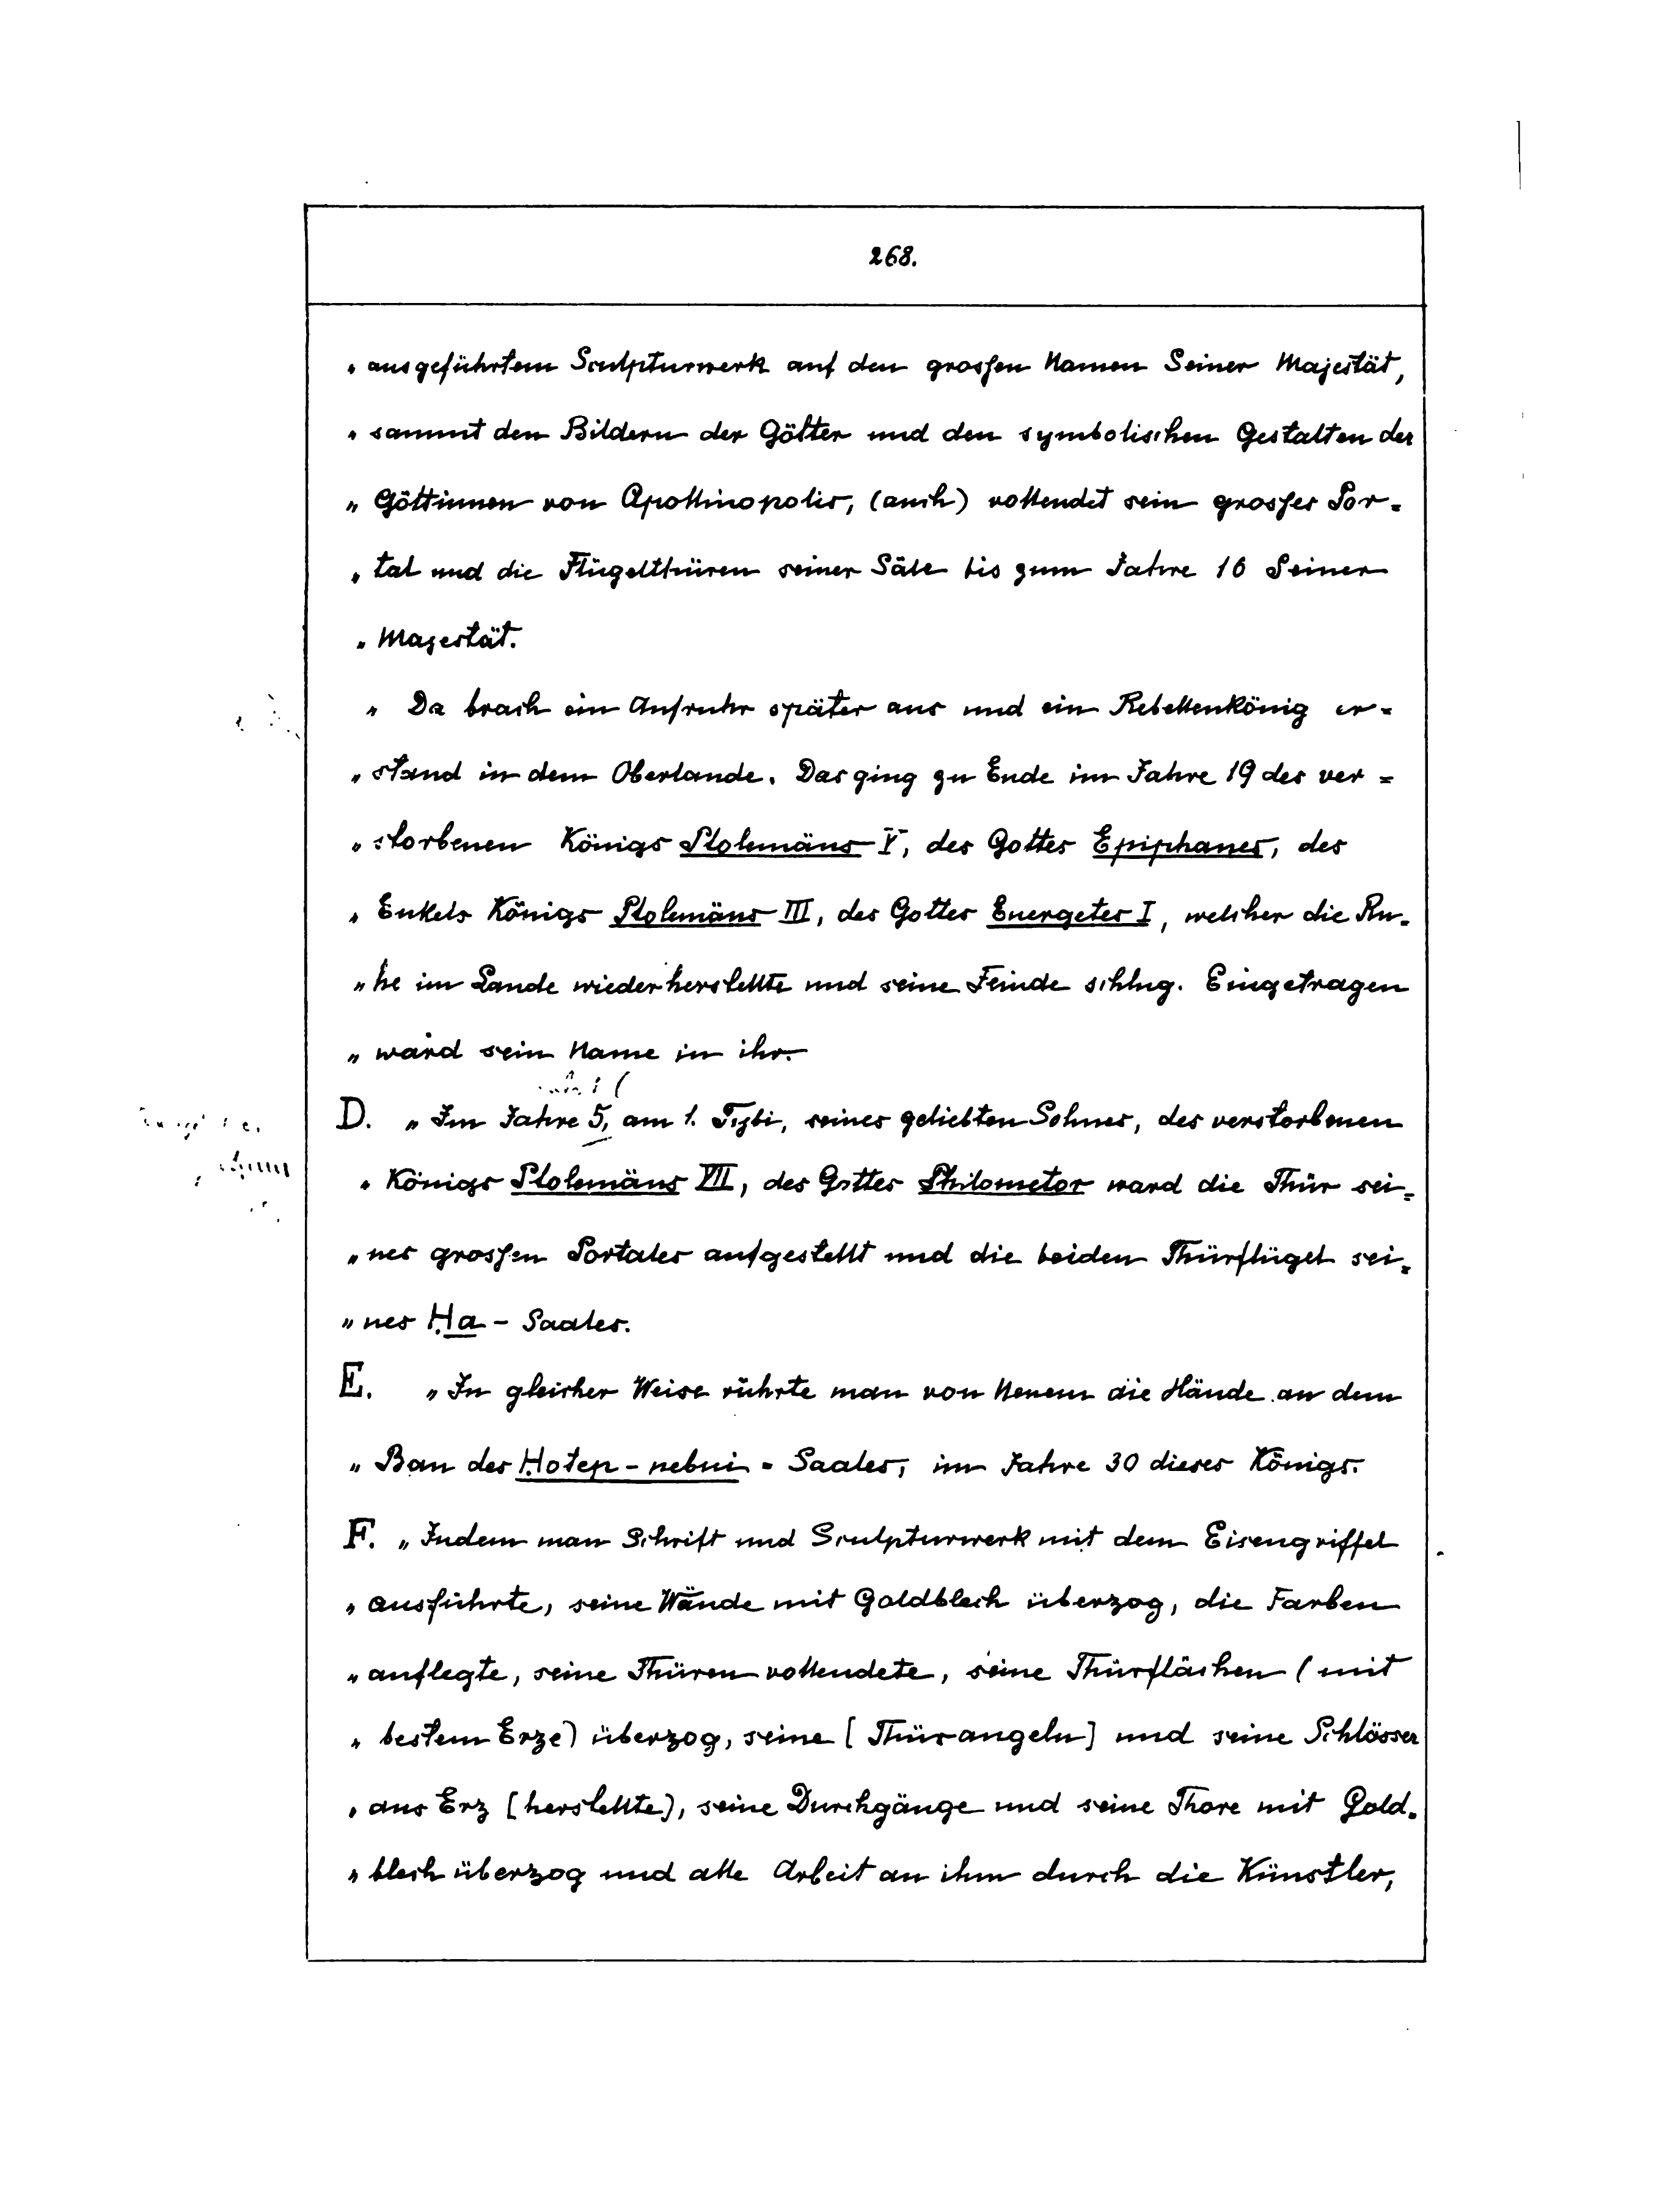 268.
„ ausgeführtem Sculpturwerk auf den grossen Namen Seiner Majestät,
„ sammt den Bildern der Götter und den symbolischen Gestalten der
„ Göttinnen von Apollinopolis, (auch) vollendet sein grosses Por-
„ tal und die Flügelthüren seiner Säle bis zum Jahre 16 Seiner
„ Majestät.
„ Da brach ein Aufruhr später aus und ein Rebellenkönig er-
„ stand in dem Oberlande. Das ging zu Ende im Jahre 19 des ver=
„ storbenen Königs Ptolemäus V, des Gottes Epiphanes, des
„ Enkels Königs Ptolemäus III, des Gottes Euergetes I, welcher die Ru-
„ he im Lande wiederherstellte und seine Feinde schlug. Eingetragen
„ ward sein Name in ihr.
D. „ Im Jahre 5, am 1. Tybi, seines geliebten Sohnes, des verstorbenen
„ Königs Ptolemäus VII, des Gottes Philometor ward die Thür sei=
„ nes grossen Portales aufgestellt und die beiden Thürflügel sei=
„ nes Ḥa - Saales.
E. „ In gleicher Weise rührte man von Neuem die Hände an dem
„ Bau des Ḥotep - nebui - Saales, im Jahre 30 dieses Königs.
F. „ Indem man Schrift und Sculpturwerk mit dem Eisengriffel
„ ausführte, seine Wände mit Goldblech überzog, die Farben
„ auflegte, seine Thüren vollendete, seine Thürflächen (mit
„ bestem Erze) überzog, seine [Thürangeln] und seine Schlösser
„ aus Erz [herstellte), seine Durchgänge und seine Thore mit Gold-
„ blech überzog und alle Arbeit an ihm durch die Künstler,